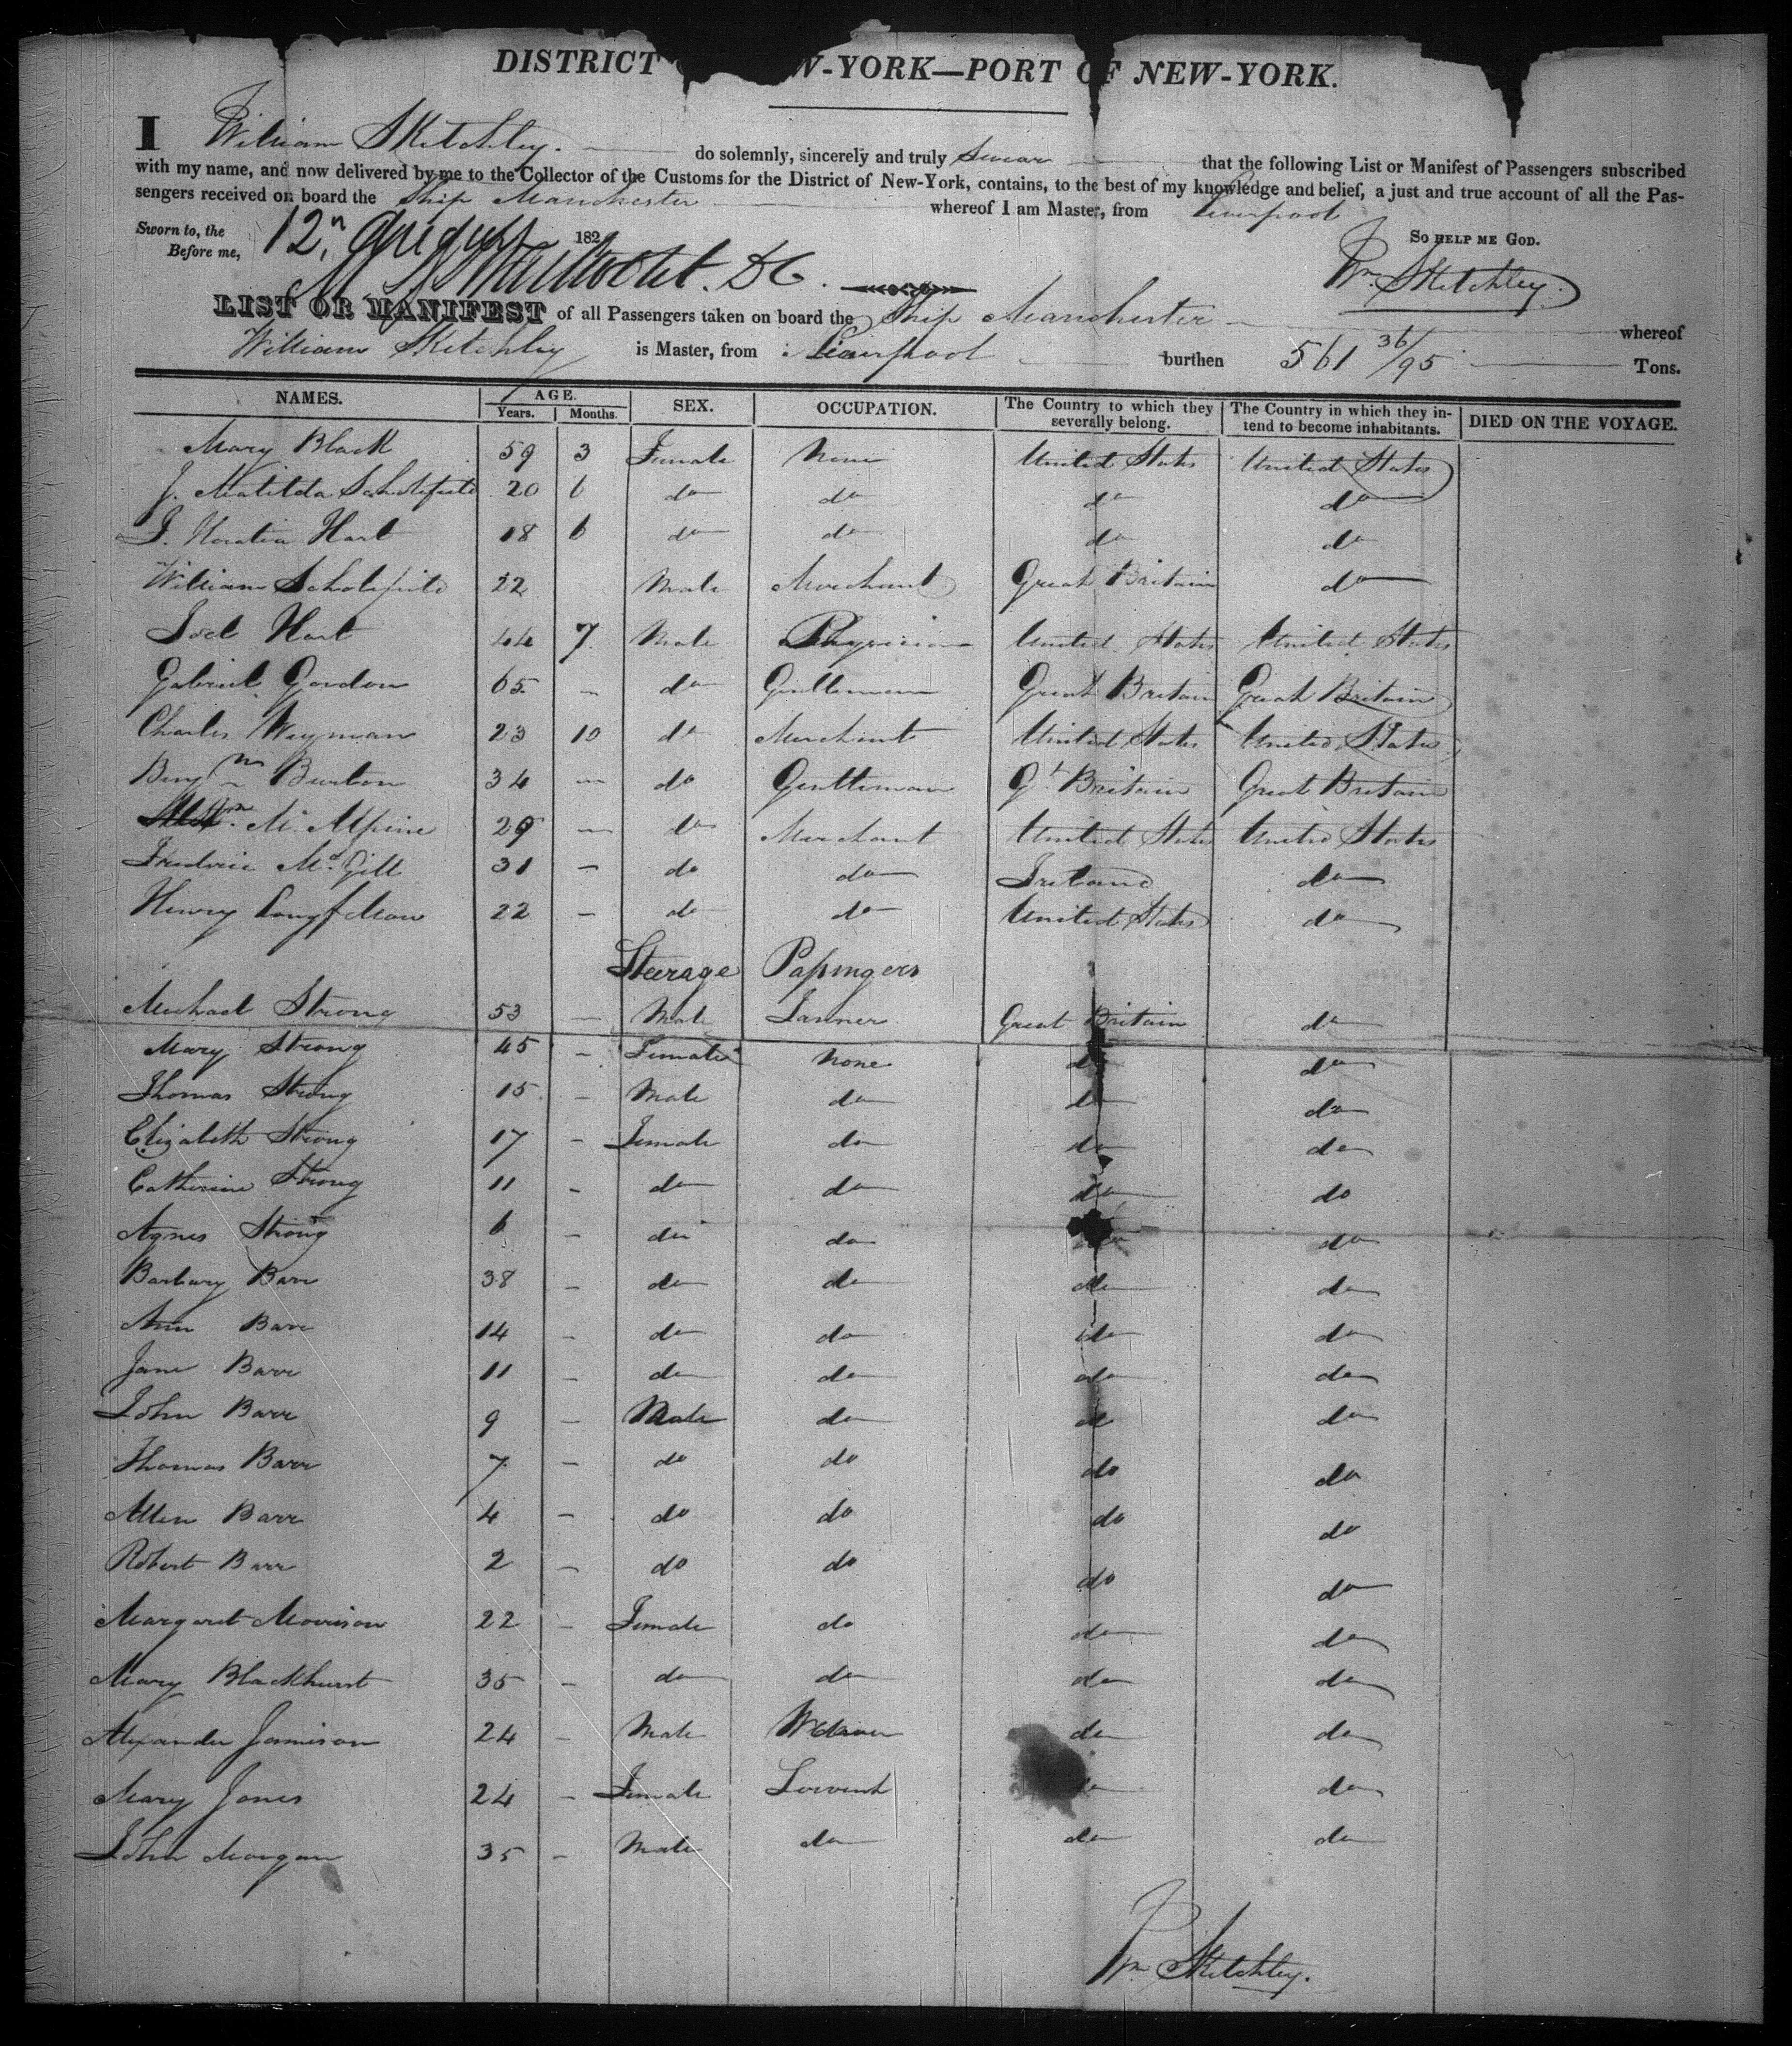 DISTRICT OF NEW-YORK—PORT OF NEW-YORK.
I William Sketchley. do solemnly, sincerely and truly swear that the following List or Manifest of Passengers subscribed
with my name, and now delivered by me to the Collector of the Customs for the District of New-York, contains, to the best of my knowledge and belief, a just and true account of all the Pas-
sengers received on board the Ship Manchester whereof I am Master, from Liverpool
Sworn to, the 12th August 1829 SO HELP ME GOD.
Before me, Wm. Sketchley.
LIST OR MANIFEST of all Passengers taken on board the Ship Manchester whereof
William Sketchley is Master, from Liverpool burthen 561 36/95 Tons.
NAMES. AGE. SEX. OCCUPATION. The Country to which they severally belong. The Country in which they in-tend to become inhabitants. DIED ON THE VOYAGE.
Years. Months.
Mary Black 59 3 Female None United States United States
J. Matilda Scholefield 20 6 do do do do
J. Horatia Hart 18 6 do do do do
William Scholefield 22 Male Merchant Great Britain do
Joel Hart 44 7 Male Physician United States United States
Gabriel Gordon 65 — do Gentleman Great Britain Great Britain
Charles Weyman 23 10 do Merchant United States United States
Benjn Burton 34 — do Gentleman Gt Britain Great Britain
McAlpine 29 — do Merchant United States United States
Frederic McGill 31 — do do Ireland do
Henry Longfellow 22 — do do United States do
Steerage Passengers
Michael Strong 53 — Male Tanner Great Britain do
Mary Strong 45 — Female None do do
Thomas Strong 15 — Male do do do
Elizabeth Strong 17 — Female do do do
Catherine Strong 11 — do do do do
Agnes Strong 6 — do do do do
Barbary Barr 38 — do do do do
Ann Barr 14 — do do do do
Jane Barr 11 — do do do do
John Barr 9 — Male do do do
Thomas Barr 7 — do do do do
Allen Barr 4 — do do do do
Robert Barr 2 — do do do do
Margaret Morrison 22 — Female do do do
Mary Blackhurst 35 — do do do do
Alexander Jamison 24 — Male Weaver do do
Mary Jones 24 — Female Servent do do
John Morgan 35 — Male do do do
Wm Sketchley.